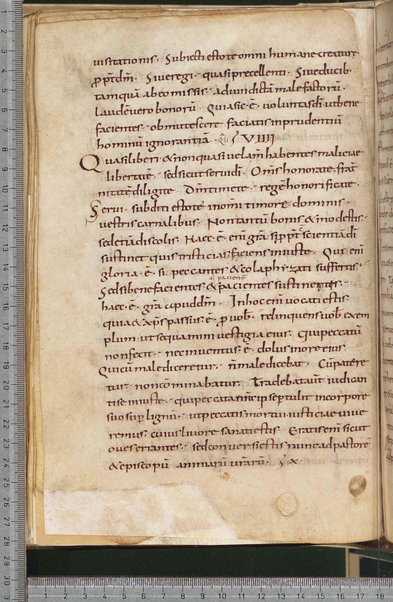 uisitationis. Subiecti estote omni humane creature
ppt dm̄. Siue regi. quasi precellenti. Siue ducib.
tamquā ab eo missis. ad uindictā male factorū.
Laudē uero bonorū. Quia sic ē. uoluntas dī. ut bene
facientes. obmutescere faciatis inprudentiū
hominū ignorantiā. VIIII
Quasi liberi & non quasi uelam̄ habentes maliciae
libertatē. sed sicut serui dī. Om̄s honorate. frat̄
nitatē diligite. Dm̄ timete. regē honorificate.
Serui. subditi estote in om̄i timore dominis.
uestris carnalibus. Non tantū bonis & modestis.
sed etiā discolis. Haec ē. enī grā. si ppt scientiā dī
sustinet quis tristicias. faciens iniuste. Que enī
gloria. ē. si peccantes & colaphizati suffertis.
Sed si bene facientes & pacientes sustinetis.
haec. ē. grā apud dm̄. In hoc enī uocati estis
quia & xps passus. ē. p uob. relinquens uob exem
plum. ut sequamini uestigia eius. Qui peccatū
non fecit. nec inuentus. ē. dolus in ore eius.
Qui cū malediceretur. n̄ maledicebat. Cū patere
tur. non cōminabatur. Tradebat aūt iudican
ti se iniuste. qui peccata nr̄a ipse ptulit in corpore
suo sup lignū. ut peccatis mortui iusticiae uiue
remus. cuius liuore sanati estis. Eratis enī sicut
oues errantes. sed conuersi estis nunc ad pastorē
& episcopū animarū urarū. X